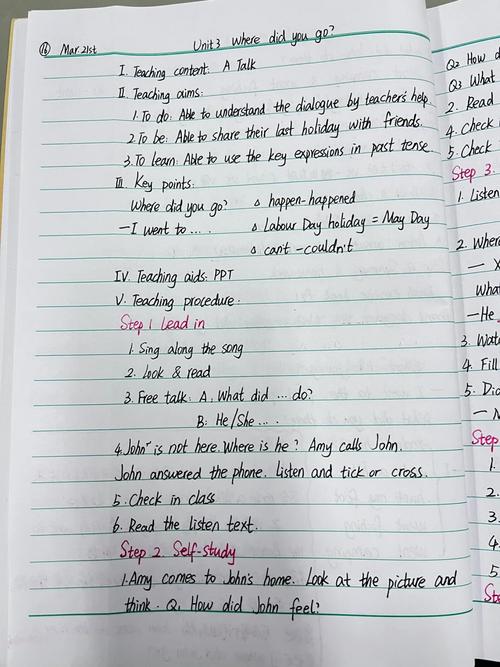 ⑯ Mar. 21st Unit 3 Where did you go?
I. Teaching content: A Talk
II. Teaching aims:
1. To do: Able to understand the dialogue by teacher's help.
2. To be: Able to share their last holiday with friends.
3. To learn: Able to use the key expressions in past tense
III. Key points:
Where did you go? △ happen-happened
— I went to .... △ Labour Day holiday = May Day
△ can't - couldn't
IV. Teaching aids: PPT
V. Teaching procedure:
Step 1 Lead in
1. Sing along the song
2. Look & read
3. Free talk: A: What did ... do?
B: He/She ....
4. John is not here. Where is he? Amy calls John.
John answered the phone. Listen and tick or cross.
5. Check in class
6. Read the listen text.
Step 2 Self-study
1. Amy comes to John's home. Look at the picture and
think. Q1 How did John feel?
Q2 How d
Q3 What
2. Read
4. Check
5. Check
Step 3:
1. Listen
2. Where
—
What
— He
3. Watc
4. Fill
5. Dic
—
Step
1.
2.
3.
4.
5